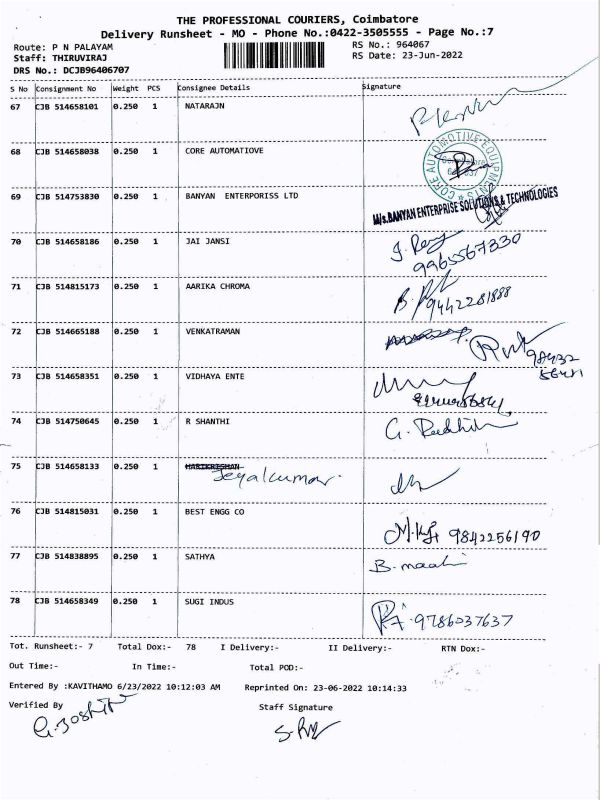 THE PROFESSIONAL COURIERS, Coimbatore
Delivery Runsheet - MO - Phone No.:0422-3505555 - Page No.:7
Route: P N PALAYAM RS No.: 964067
Staff: THIRUVIRAJ RS Date: 23-Jun-2022
DRS No.: DCJB96406707
S No Consignment No Weight PCS Consignee Details Signature
67 CJB 514658101 0.250 1 NATARAJN
68 CJB 514658038 0.250 1 CORE AUTOMATIOVE CORE AUTOMOTIVE EQUIPMENTS
69 CJB 514753830 0.250 1 BANYAN ENTERPORISS LTD M/s.BANYAN ENTERPRISE SOLUTIONS & TECHNOLOGIES
70 CJB 514658186 0.250 1 JAI JANSI
9965567330
71 CJB 514815173 0.250 1 AARIKA CHROMA
9442281888
72 CJB 514665188 0.250 1 VENKATRAMAN
73 CJB 514658351 0.250 1 VIDHAYA ENTE
74 CJB 514750645 0.250 1 R SHANTHI
75 CJB 514658133 0.250 1 HARIKRISHAN
Jeyalkumar.
76 CJB 514815031 0.250 1 BEST ENGG CO
9842256190
77 CJB 514838895 0.250 1 SATHYA
78 CJB 514658349 0.250 1 SUGI INDUS
9786037637
Tot. Runsheet:- 7 Total Dox:- 78 I Delivery:- II Delivery:- RTN Dox:-
Out Time:- In Time:- Total POD:-
Entered By :KAVITHAMO 6/23/2022 10:12:03 AM Reprinted On: 23-06-2022 10:14:33
Verified By Staff Signature